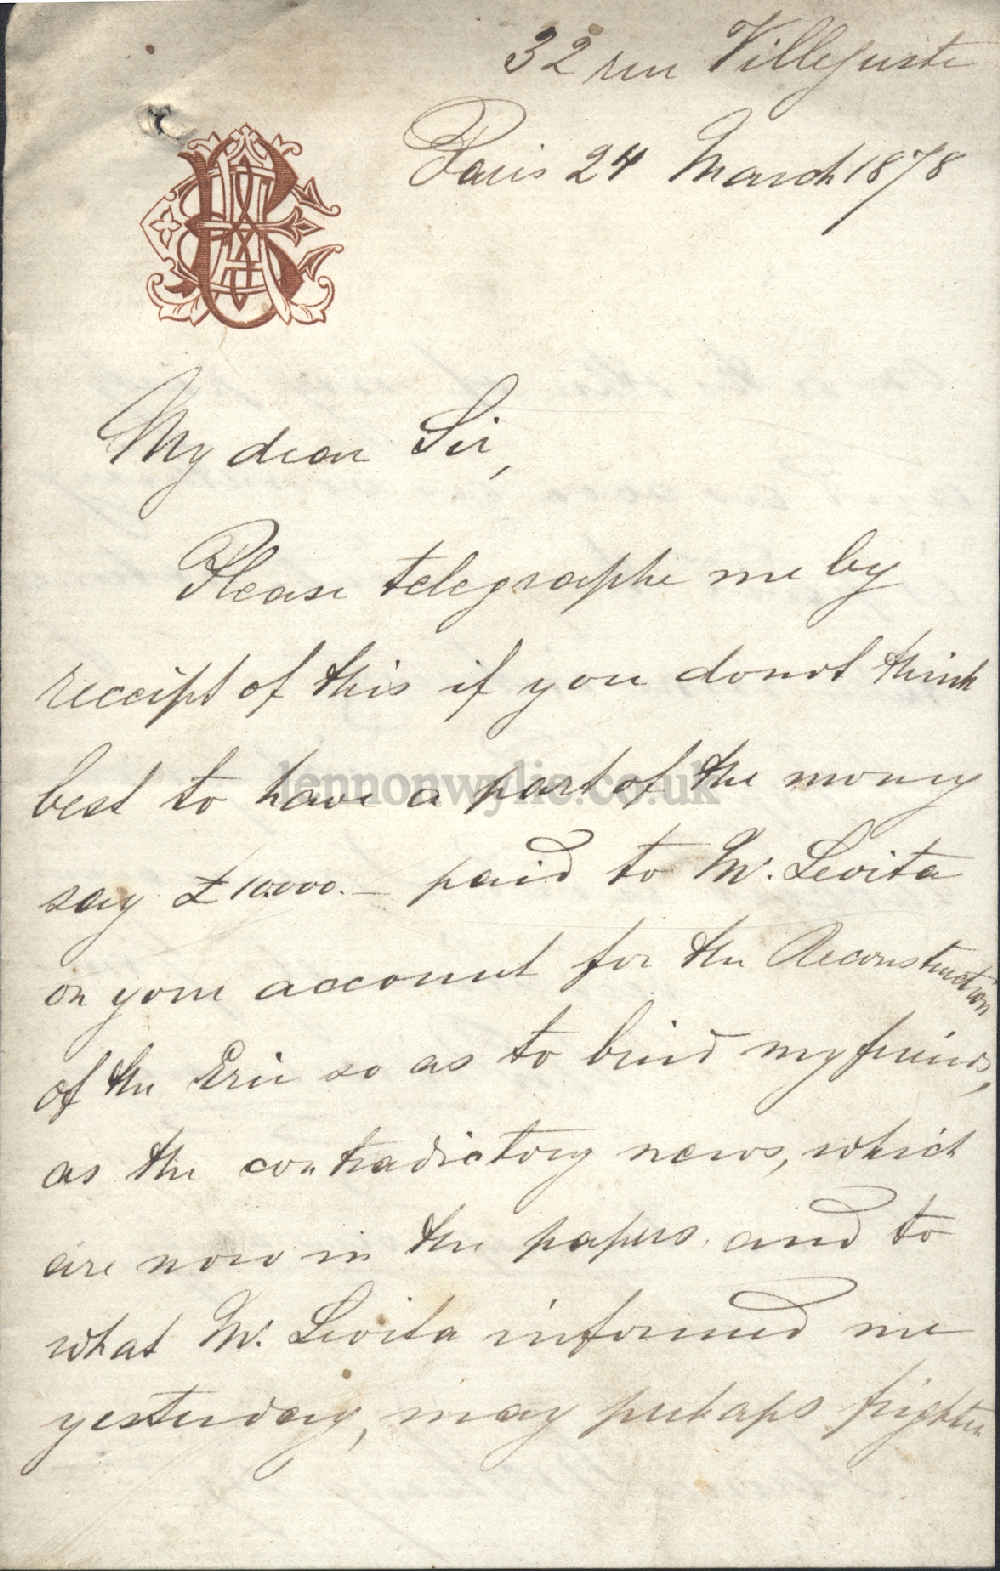 32 rue Villejuste
Paris 24 March 1878
My dear Sir,
Please telegraphe me by
receipt of this if you do not think
best to have a part of the money
say £10.000.— paid to Mr. Levita
on your account for the Reconstruction
of the Erie so as to bind my friends,
as the contradictory news, which
are now in the papers and to
what Mr. Levita informed me
yesterday, may perhaps frighten
lennonwylie.co.uk